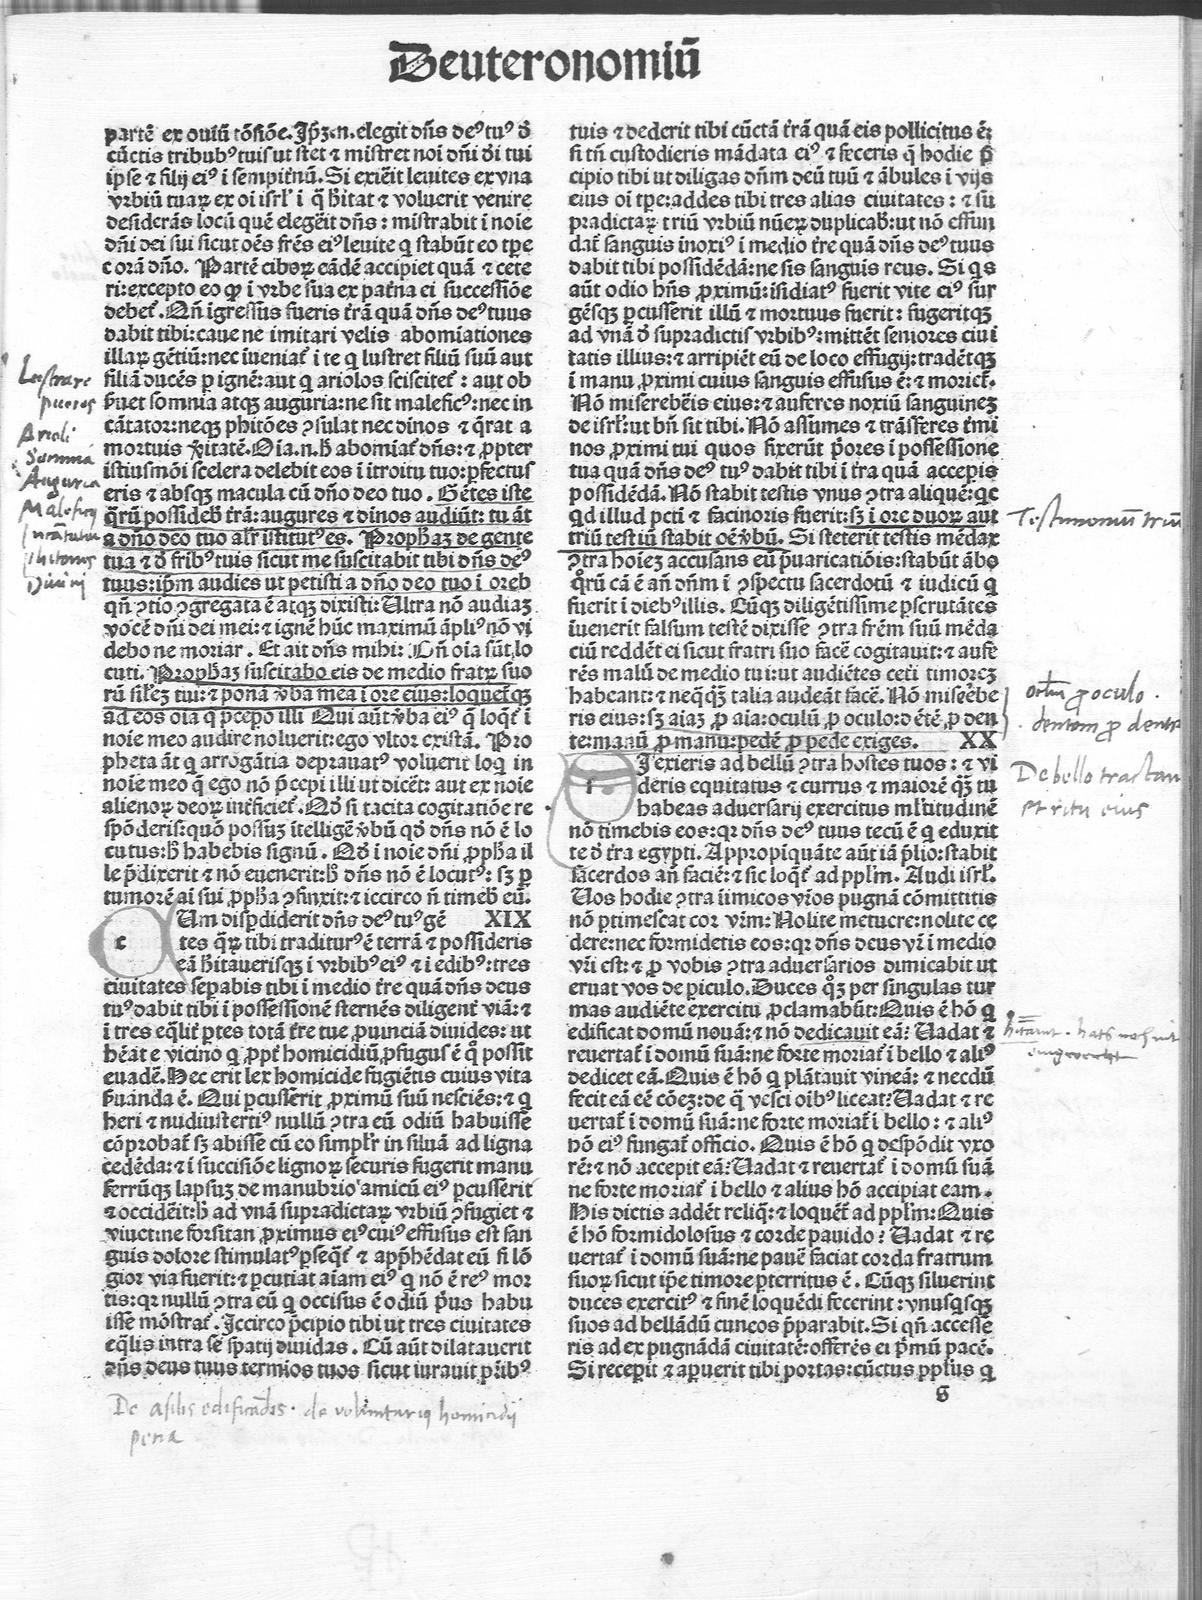 Deuteronomiū
partē ex ouiū tōsiōe. Ip̄ꝫ.n. elegit dn̄s deꝰ tuꝰ ō
cūctis tribubꝰ tuis ut stet ⁊ mīstret noī dn̄i dī tui
ipse ⁊ filij eiꝰ ī sempit̄nū. Si exiēit leuites ex vna
vrbiū tuaꝝ ex oī isrl̄ ī q̄ h̄itat ⁊ voluerit venire
desiderās locū quē elegēit dn̄s: mīstrabit ī noīe
dn̄i dei sui sicut oēs fr̄es eiꝰ leuite q̇ stabūt eo tp̄e
corā dn̄o. Partē ciboꝝ eādē accipiet quā ⁊ cete
ri: excepto eo qꝫ ī vrbe sua ex pat̄na ei successiōe
debet᷑. Qn̄ īgressus fueris t̄rā quā dn̄s deꝰ tuus
dabit tibi: caue ne imitari velis abomīationes
illaꝝ gētiū: nec īueniat᷑ ī te q̇ lustret filiū suū aut
filiā ducēs ꝑ ignē: aut q̇ ariolos sciscitet᷑: aut ob
ẜuet somnia atqꝫ auguria: ne sit maleficꝰ: nec in
cātator: neqꝫ phitōes ꝯsulat nec diuinos ⁊ q̄rat a
mortuis v̄itatē. Oīa.n. h̄ abomīat᷑ dn̄s: ⁊ ꝓpter
istiusmōi scelera delebit eos ī ītroitu tuo: ꝑfectus
eris ⁊ absqꝫ macula cū dn̄o deo tuo. Gētes iste
q̄rū possideb̄ t̄rā: augures ⁊ diuinos audiūt: tu āt
a dn̄o deo tuo alr̄ īstitutꝰ es. Prophaꝫ de gente
tua ⁊ d̄ fr̄ibꝰ tuis sicut me suscitabit tibi dn̄s deꝰ
tuus: ip̄m audies ut petisti a dn̄o deo tuo ī oreb
qn̄ ꝯtio ꝯgregata ē atqꝫ dixisti: Ultra nō audiaꝫ
vocē dn̄i dei mei: ⁊ ignē hūc maximū āpliꝰ nō vi
debo ne moriar. Et ait dn̄s mihi: Bn̄ oīa sūt lo
cuti. Prophaꝫ suscitabo eis de medio fratꝝ suo
rū sil̄eꝫ tui: ⁊ ponā v̄ba mea ī ore eius: loquet᷑qꝫ
ad eos oīa q̄ p̄cepo illi Qui aūt v̄ba eiꝰ q̄ loqt᷑ ī
noīe meo audire noluerit: ego vltor existā. Pro
pheta āt q̇ arrogātia deprauatꝰ voluerit loq̇ in
noīe meo q̄ ego nō p̄cepi illi ut dicēt: aut ex noīe
alienoꝝ deoꝝ īt̄ficiet᷑. Qd̄ si tacita cogitatiōe re
spōderis: quō possuꝫ ītelligē v̄bū qd̄ dn̄s nō ē lo
cutus: h̄ habebis signū. Qd̄ ī noīe dn̄i ꝓpha il
le p̄dixerit ⁊ nō euenerit: h̄ dn̄s nō ē locutꝰ: sꝫ ꝑ
tumorē ai sui ꝓpha ꝯfinxit: ⁊ iccirco n̄ timeb̄ eū.
c Um disp̄diderit dn̄s deꝰ tuꝰ gē XIX
tes q̄ꝝ tibi traditurꝰ ē terrā ⁊ possideris
eā h̄itauerisqꝫ ī vrbibꝰ eiꝰ ⁊ ī edibꝰ: tres
ciuitates seꝑabis tibi ī medio t̄re quā dn̄s deus
tuꝰ dabit tibi ī possessionē sternēs diligent᷑ viā: ⁊
ī tres eq̄lit᷑ ꝑtes totā t̄re tue ꝓuinciā diuides: ut
hēat e vicino q̇ ꝓpt᷑ homicidiū ꝓfugꝰ ē q̊ possit
euadē. Hec erit lex homicide fugiētis cuius vita
ẜuanda ē. Qui ꝑcusserit ꝓximū suū nesciēs: ⁊ q̇
heri ⁊ nudiustertiꝰ nullū ꝯtra eū odiū habuisse
cōprobat᷑ sꝫ abisse cū eo simpl̄r in siluā ad ligna
cedēda: ⁊ ī succisiōe lignoꝝ securis fugerit manu
ferrūqꝫ lapsuꝫ de manubrio amicū eiꝰ ꝑcusserit
⁊ occidēit: h̄ ad vnā supradictaꝝ vrbiū ꝯfugiet ⁊
viuet: ne forsitan ꝓximus eiꝰ cuiꝰ effusus est san
guis dolore stimulatꝰ ꝑseq̄t᷑ ⁊ app̄hēdat eū si lō
gior via fuerit: ⁊ ꝑcutiat aīam eiꝰ q̇ nō ē reꝰ mor
tis: qr nullū ꝯtra eū q̇ occisus ē odiū p̄us habu
isse mōstrat᷑. Iccirco p̄cipio tibi ut tres ciuitates
eq̄lis intra se spatij diuidas. Cū aūt dilatauerit
dn̄s deus tuus termīos tuos sicut iurauit p̄ribꝰ
tuis ⁊ dederit tibi cūctā t̄rā quā eis pollicitus ē:
si tn̄ custodieris mādata eiꝰ ⁊ feceris q̄ hodie p̄
cipio tibi ut diligas dn̄m deū tuū ⁊ ābules ī vijs
eius oī tp̄e: addes tibi tres alias ciuitates: ⁊ su
pradictaꝝ triū vrbiū nūeꝝ duplicab̄: ut nō effun
dat᷑ sanguis īnoxiꝰ ī medio t̄re quā dn̄s deꝰ tuus
dabit tibi possidēdā: ne sis sanguis reus. Si q̇s
aūt odio hn̄s ꝓximū: īsidiatꝰ fuerit vite eiꝰ sur
gēsqꝫ ꝑcusserit illū ⁊ mortuus fuerit: fugeritqꝫ
ad vnā d̄ supradictis vrbibꝰ: mittēt seniores ciui
tatis illius: ⁊ arripiēt eū de loco effugij: tradētqꝫ
ī manu ꝓximi cuius sanguis effusus ē: ⁊ moriet᷑.
Nō miserebēis eius: ⁊ auferes noxiū sanguineꝫ
de isrl̄: ut bn̄ sit tibi. Nō assumes ⁊ trāsferes t̄mi
nos ꝓximi tui quos fixerūt p̄ores ī possessione
tua quā dn̄s deꝰ tuꝰ dabit tibi ī t̄ra quā acceꝑis
possidēdā. Nō stabit testis vnus ꝯtra aliquē: qc
qd illud pctī ⁊ facinoris fuerit: sꝫ ī ore duoꝝ aut
triū testiū stabit oē v̄bū. Si steterit testis mēdax
ꝯtra hoīeꝫ accusans eū p̄uaricatiōis: stabūt ābo
q̊rū cā ē an̄ dn̄m ī ꝯspectu sacerdotū ⁊ iudicū q̇
fuerit ī diebꝰ illis. Cūqꝫ diligētissime ꝑscrutātes
īuenerit falsum testē dixisse ꝯtra fr̄em suū mēda
ciū reddēt ei sicut fratri suo facē cogitauit: ⁊ aufe
res malū de medio tui: ut audiētes cet̄i timoreꝫ
habeant: ⁊ neq̄qꝫ talia audeāt facē. Nō miserēbe
ris eius: sꝫ aīaꝫ ꝓ aīa: oculū ꝓ oculo: dētē ꝓ den
te: manū ꝓ manu: pedē ꝓ pede exiges. XX
s I exieris ad bellū ꝯtra hostes tuos: ⁊ vi
deris equitatus ⁊ currus ⁊ maiorē qꝫ tu
habeas aduersarij exercitus ml̄titudinē
nō timebis eos: qr dn̄s deꝰ tuus tecū ē q̇ eduxit
te d̄ t̄ra egypti. Appropīquāte aūt iā p̄lio: stabit
sacerdos an̄ aciē: ⁊ sic loqt᷑ ad ppl̄m. Audi isrl̄.
Uos hodie ꝯtra īimicos vr̄os pugnā cōmittitis
nō ꝑtimescat cor vr̄m: Nolite metuere: nolite ce
dere: nec formidetis eos: qr dn̄s deus vr̄ ī medio
vr̄i est: ⁊ ꝓ vobis ꝯtra aduersarios dimicabit ut
eruat vos de ꝑiculo. Duces q̊qꝫ per singulas tur
mas audiēte exercitu ꝓclamabūt: Quis ē hō q̇
edificat domū nouā: ⁊ nō dedicauit eā: Uadat ⁊
reuertat᷑ ī domū suā: ne forte moriat᷑ ī bello ⁊ aliꝰ
dedicet eā. Quis ē hō q̇ plātauit vineā: ⁊ necdū
fecit eā eē cōeꝫ: de q̄ vesci oibꝰ liceat: Uadat ⁊ re
uertat᷑ ī domū suā: ne forte moriat᷑ ī bello: ⁊ aliꝰ
hō eiꝰ fungat᷑ officio. Quis ē hō q̇ despōdit vxo
rē: ⁊ nō accepit eā: Uadat ⁊ reuertat᷑ ī domū suā
ne forte moriat᷑ ī bello ⁊ alius hō accipiat eam.
His dictis addēt reliq̄: ⁊ loquēt᷑ ad ppl̄m: Quis
ē hō formidolosus ⁊ corde pauido: Uadat ⁊ re
uertat᷑ ī domū suā: ne pauē faciat corda fratrum
suoꝝ sicut ip̄e timore ꝑterritus ē. Cūqꝫ siluerint
duces exercitꝰ ⁊ finē loquēdi fecerint: vnusq̇sqꝫ
suos ad bellādū cuneos p̄parabit. Si qn̄ accesse
ris ad expugnādā ciuitatē: offerēs ei p̄mū pacē.
Si receꝑit ⁊ aꝑuerit tibi portas: cūctus ppl̄us q̇
g
Lustrare
pueros
Arioli
Somnia
Auguria
Malefici
Incātatores
phitones
Diuini
Testimoniū triū
oclm̄ ꝓ oculo.
dentem ꝓ dente
De bello tractan
et ritu eius
De asilis edificādis. de voluntarij homicidij
pena